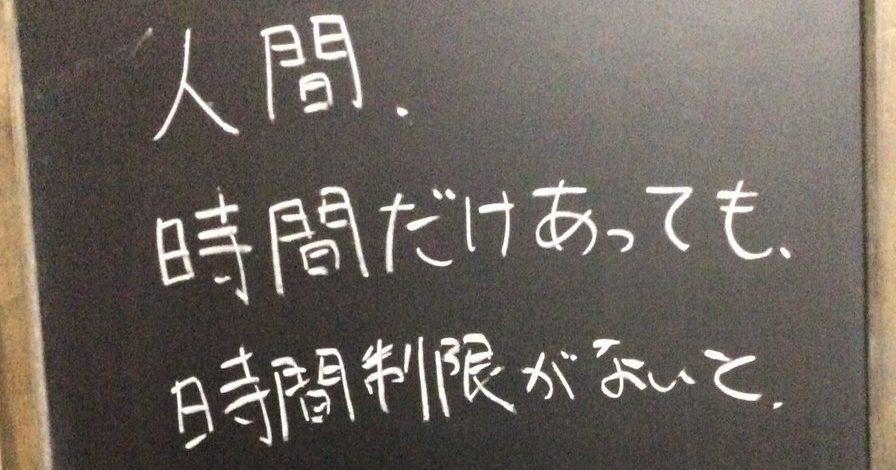 人間、
時間だけあっても、
時間制限がないと、